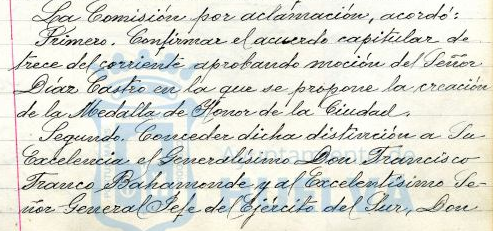 La Comisión por aclamación, acordó:
Primero. Confirmar el acuerdo capitular de
trece del corriente aprobando moción del Señor
Díaz Castro en la que se propone la creación
de la Medalla de Honor de la Ciudad.
Segundo. Conceder dicha distinción a Su
Excelencia el Generalísimo Don Francisco
Franco Bahamonde y al Excelentísimo Se-
ñor General Jefe del Ejército del Sur, Don